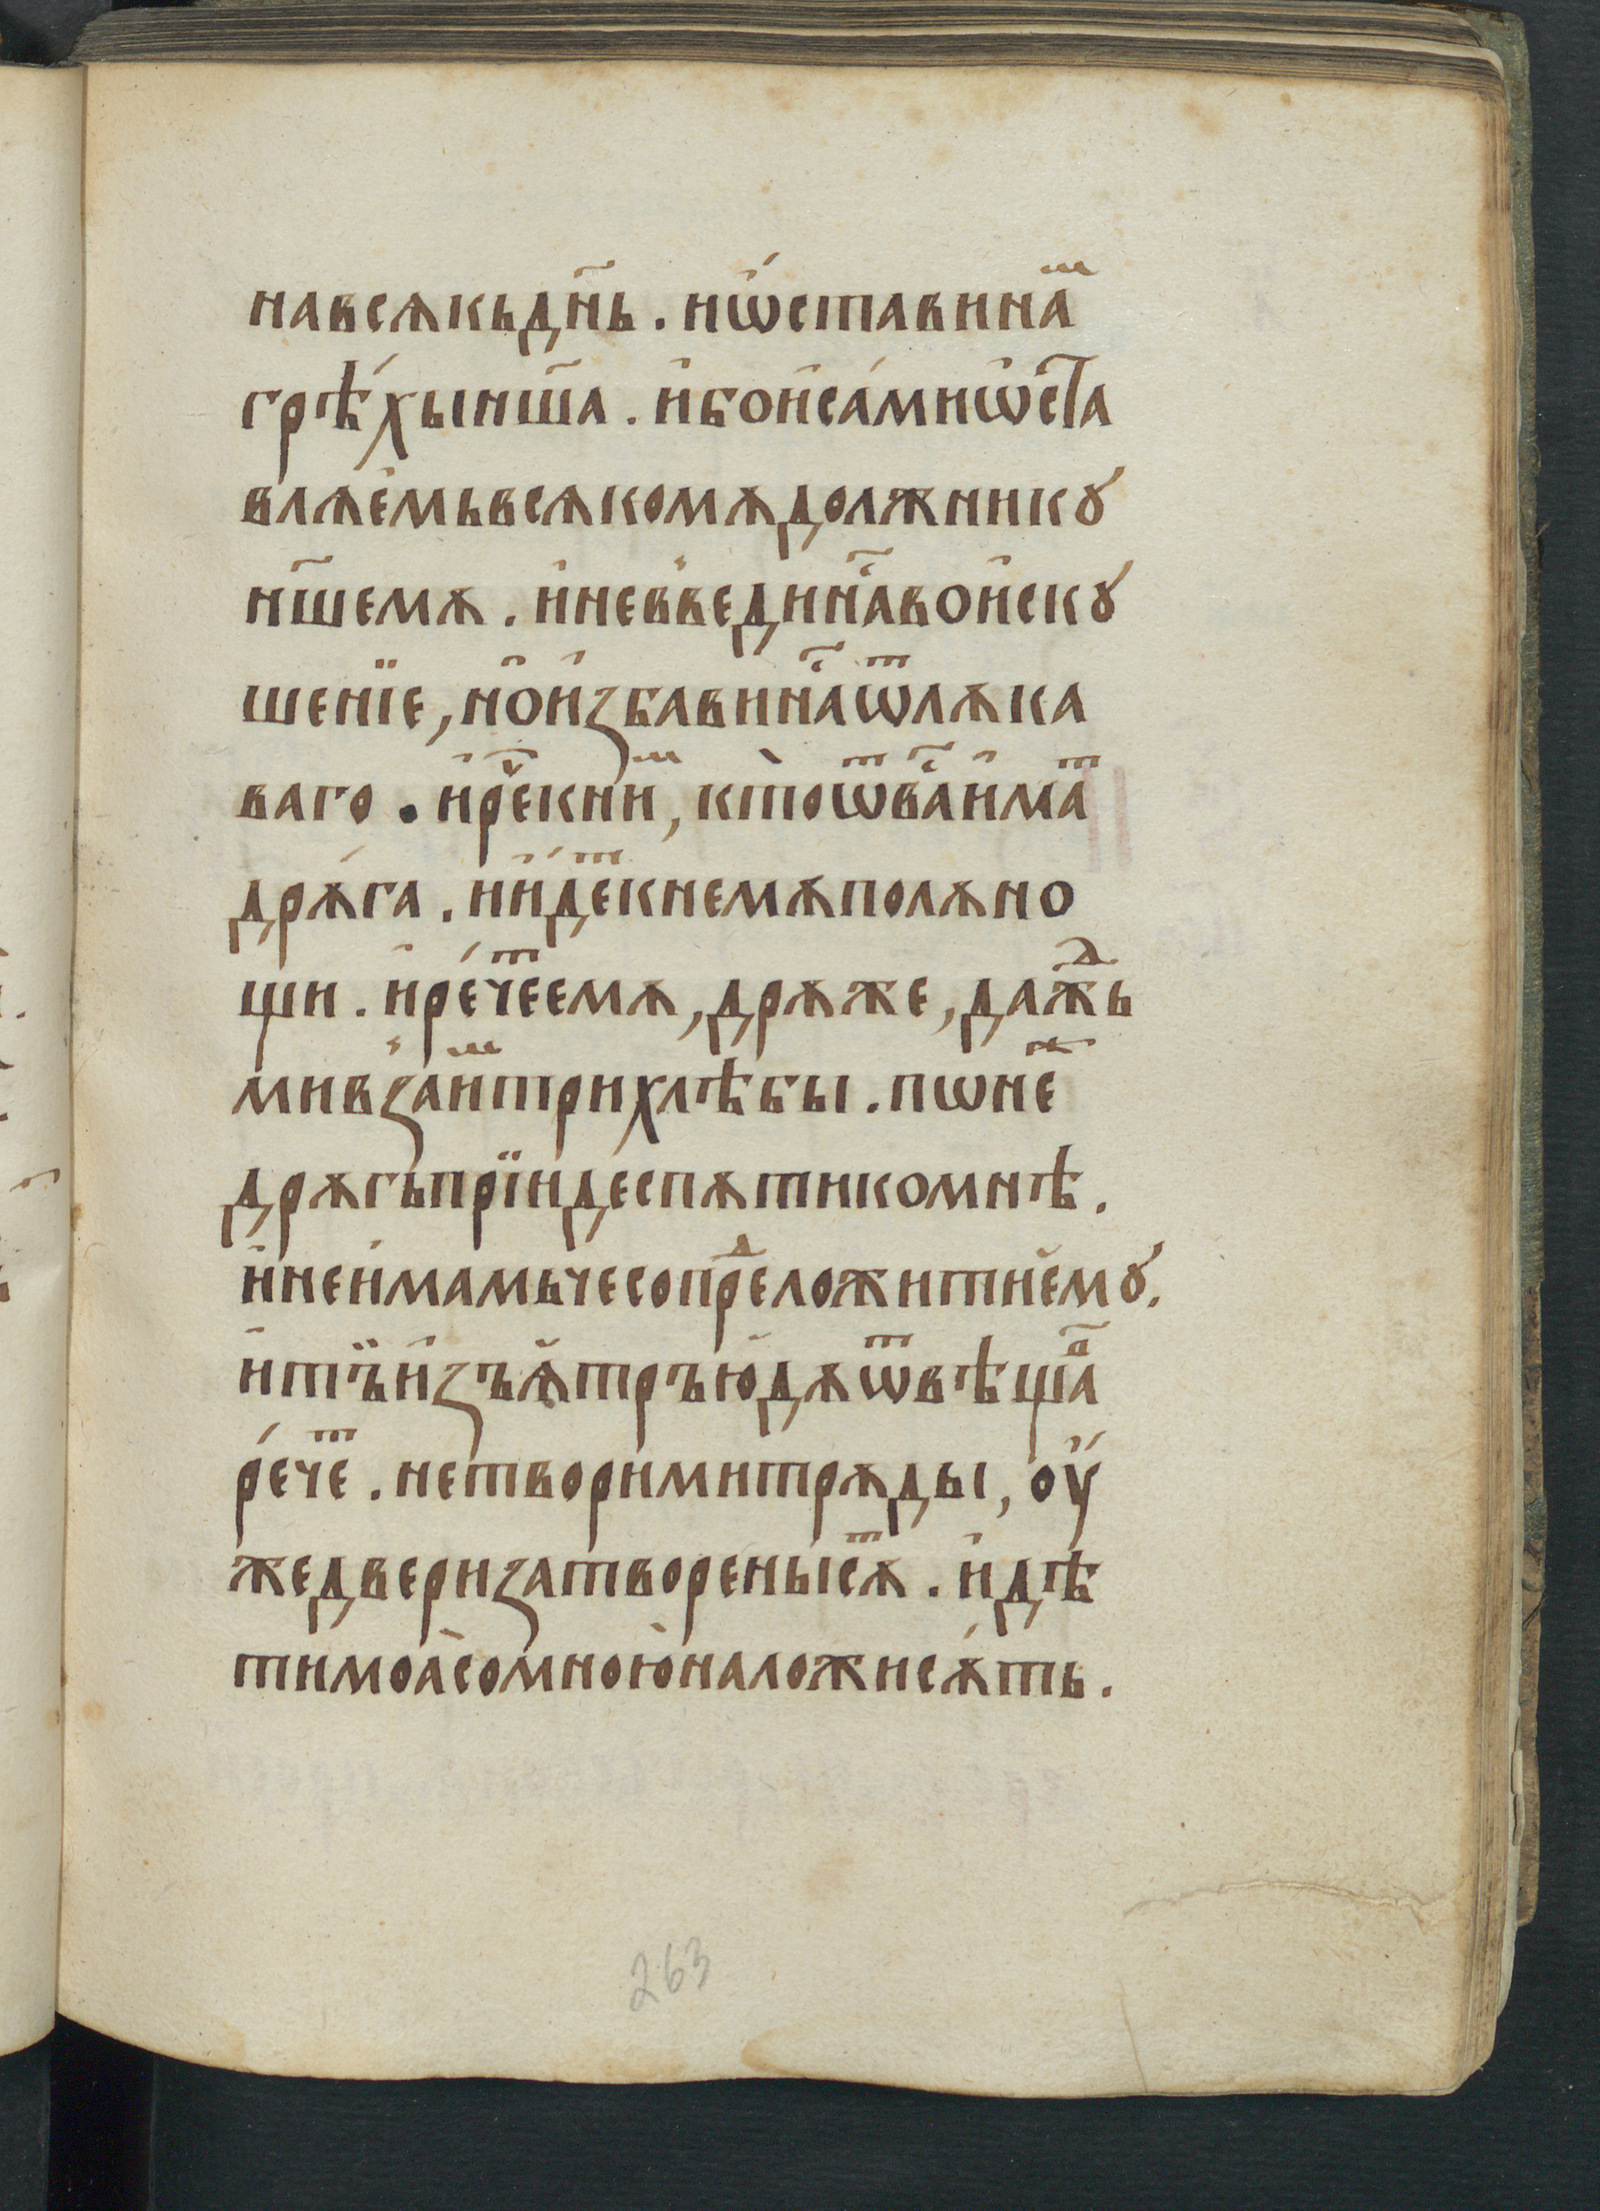 навсѧкьдн҃ь. иѡ҆́ставинаⷨ
грѣ́хынш҃а. и҆бои҆са́миѡ҆сⷮа
влѧе҆мьвсѧкомѫдолжникꙋ
нш҃емѫ. и҆невъвединаⷭ҇вои҆скꙋ
шенїе, нои҆збавинаⷭ҇ѿлѫка
ваго. и҆рⷱ҇екниⷨ, кт̀оѿваⷭ҇и҆маⷮ
дрѫ́га. и҆и҆́деⷮкнемѫполѫно
щи. и҆ре́чеⷮемѫ, дрѫже, даⷤдь
мивзаиⷨтрихлѣбы. пѡнеⷤ
дрѫгьпрїи҆деспѫтикомнѣ.
и҆неи҆мамьчесопреⷣложитие҆мꙋ.
и҆тъи҆зъѫ҆тръю҆дѫѿвѣщаⷡ҇
ре́чеⷮ. нетворимитрѫды, оу҆́
жедверизатворены́сѫⷮ. и҆дѣ
тимоа҆̀сомною̀наложисѫ́ть.
263